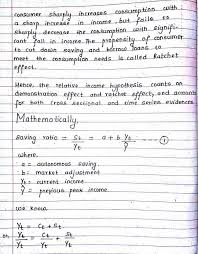 consumer sharply increases consumption with
a sharp increase in income but fails to
sharply decrease the consumption with signifi-
cant fall in income. The propensity of consumer
to cut down saving and borrow loans to
meet the consumption needs is called Ratchet
effect.
Hence, the relative income hypothesis counts on
demonstration effect and ratchet effect, and accounts
for both cross sectional and time series evidences
Mathematically,
Saving ratio = St/Yt = a + b Yt/Ŷ ------ ①
where,
a = autonomous saving
b = market adjustment
Yt = current income
Ŷ = previous peak income.
we know,
Yt = Ct + St
or, Yt/Yt = Ct/Yt + St/Yt